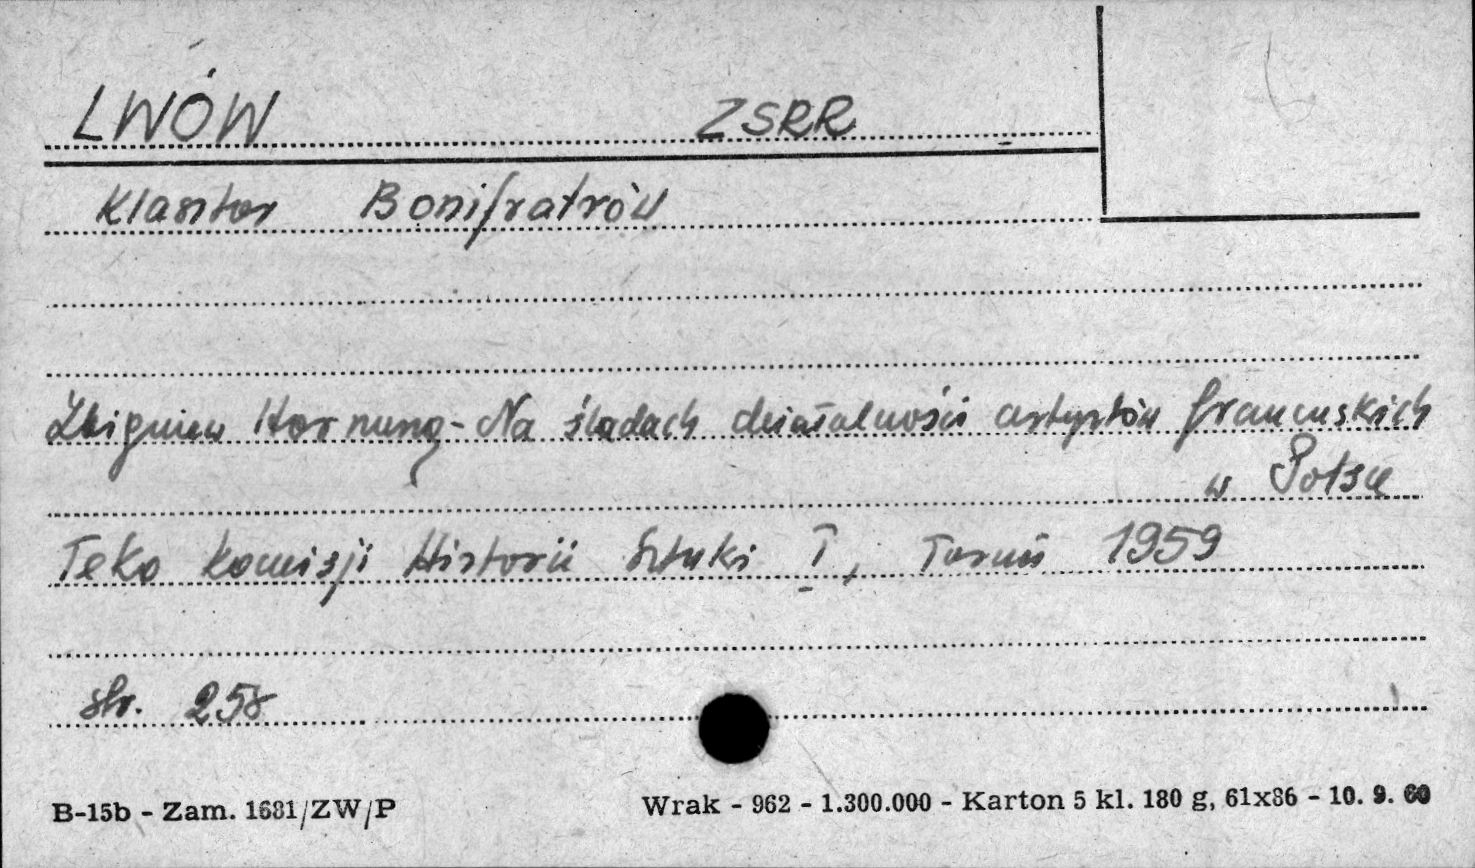 LWÓW ZSRR
Klasztor Bonifratrów
Zbigniew Hornung - Na śladach działalności artystów francuskich
w Polsce
Teka Komisji Historii Sztuki I, Toruń 1959
str. 258
B-15b - Zam. 1681/ZW/P
Wrak - 962 - 1.300.000 - Karton 5 kl. 180 g, 61x86 - 10. 9. 60